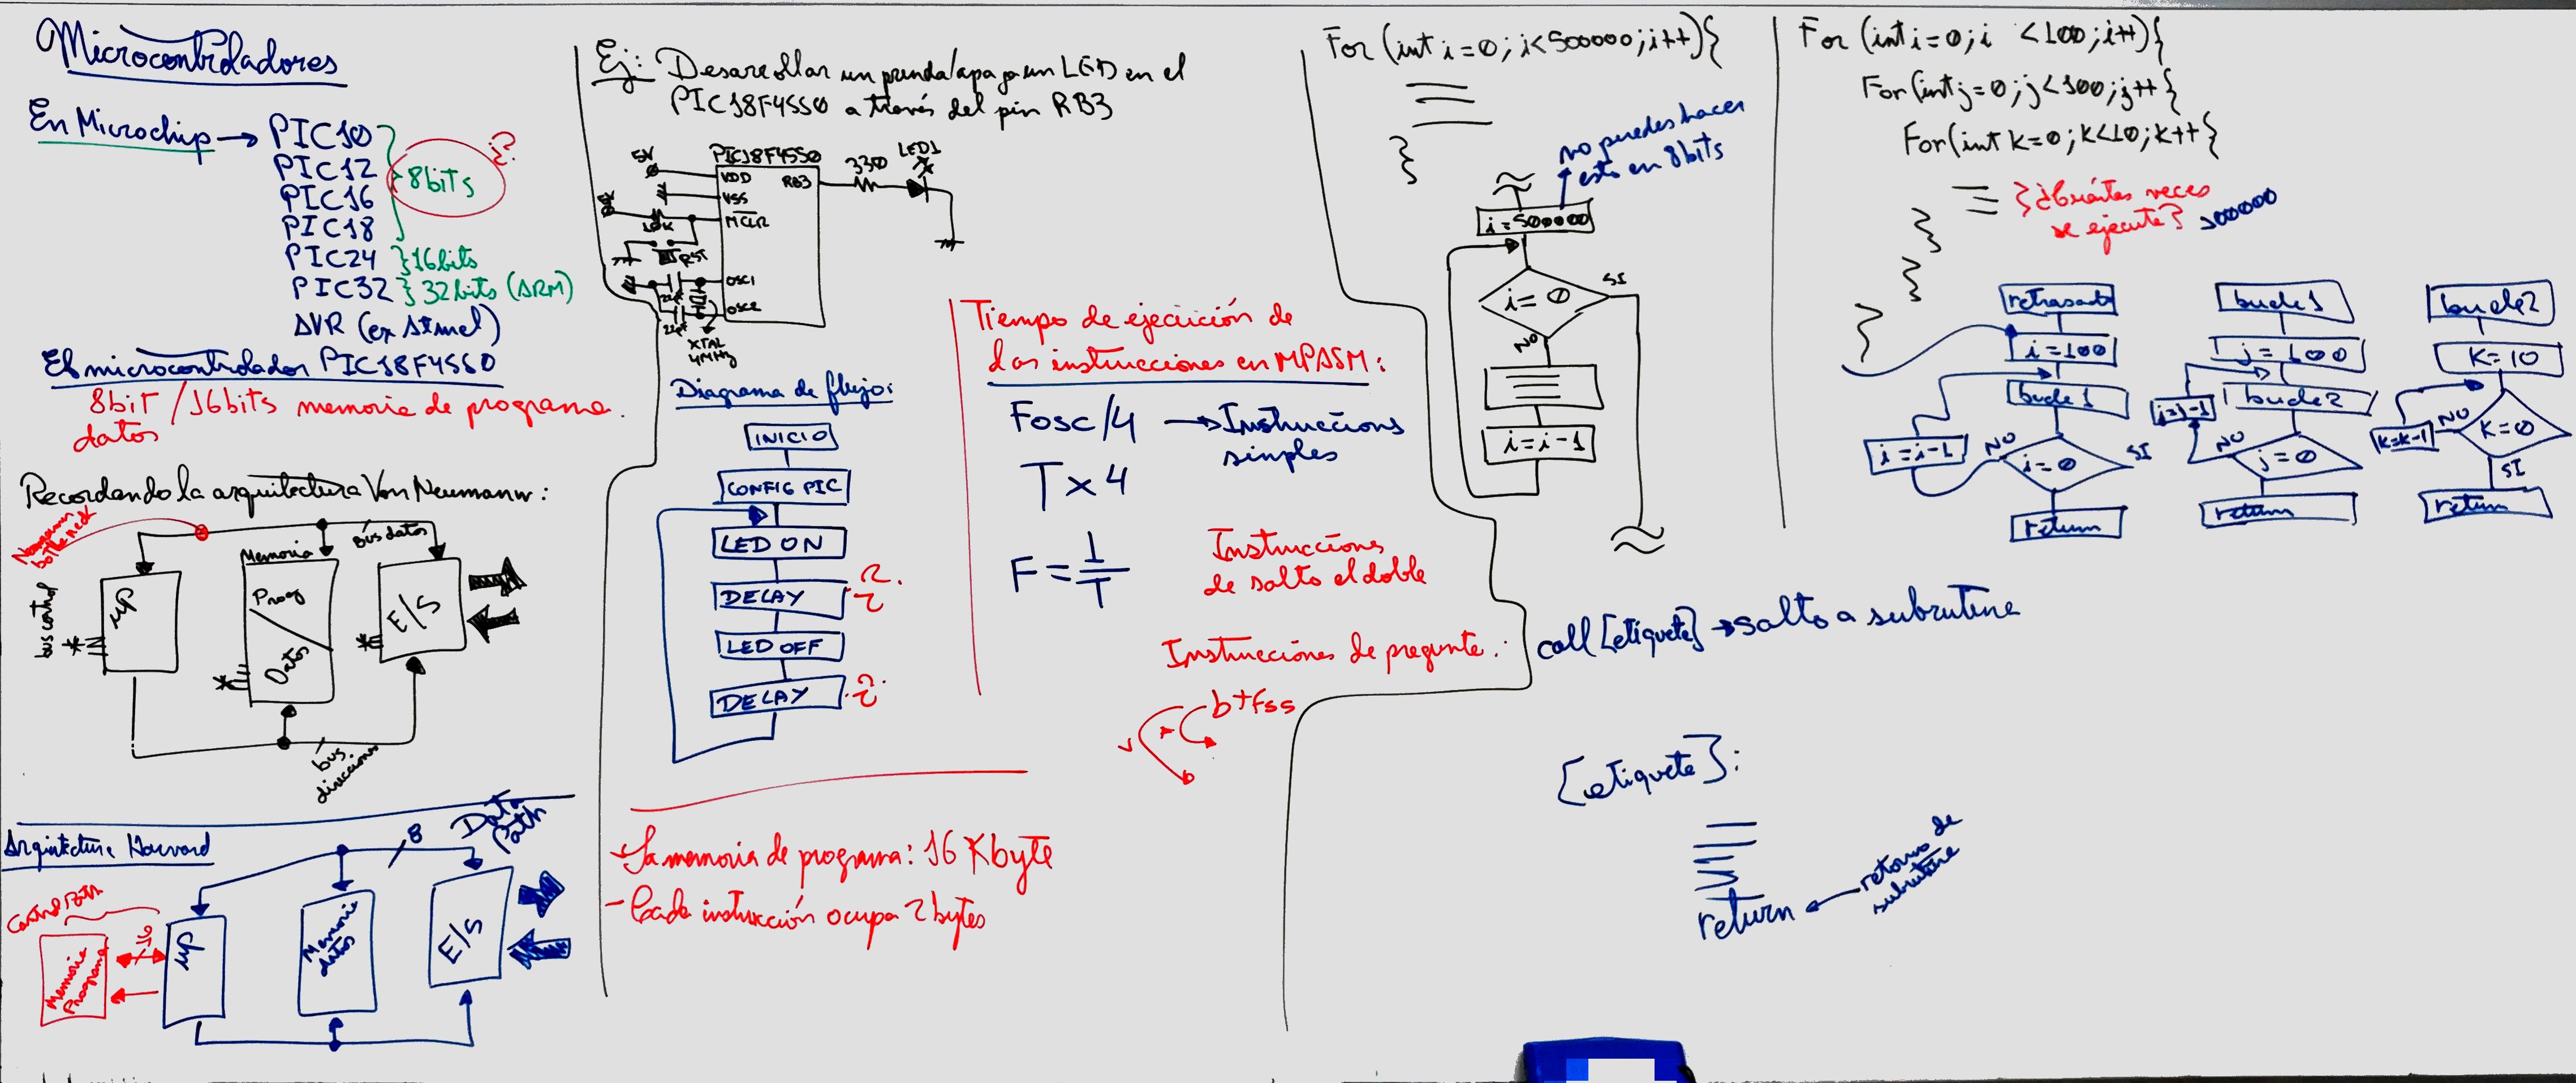 Microcontroladores
En Microchip → PIC10
PIC12
PIC16
PIC18
8bits
PIC24 }16bits
PIC32 } 32bits (ARM)
AVR (ex Atmel)
El microcontrolador PIC18F4550
8bit / 16bits memoria de programa.
datos
Recordando la arquitectura Von Neumann:
bus datos
Memoria
bus control
μP
Prog
Datos
E/S
bus
direcciones
Arquitectura Harvard
8
Data
Path
Control Path
16
Memoria
Programa
μP
Memoria
datos
E/S
Ej: Desarrollar un prenda/apaga un LED en el
PIC18F4550 a través del pin RB3
5V
PIC18F4550
VDD
VSS
MCLR
OSC1
OSC2
RB3
330
LED1
5V
10K
RST
22pF
22pF
XTAL
4MHz
Diagrama de flujo:
INICIO
CONFIG PIC
LED ON
DELAY
LED OFF
DELAY
- La memoria de programa: 16 Kbyte
- Cada instrucción ocupa 2 bytes
Tiempo de ejecución de
las instrucciones en MPASM:
Fosc/4 → Instruccions
simples
T x 4
F = 1/T
Instrucciones
de salto el doble
Instrucciones de pregunta:
btfss
For (int i=0; i<500000; i++){
}
no puedes hacer
esto en 8bits
i=500000
i=0
SI
NO
i=i-1
call [etiqueta] → salto a subrutina
[etiqueta]:
return ← retorno de
subrutina
For (int i=0; i <100; i++){
For (int j=0; j<100; j++{
For (int k=0; k<10; k++{
} ¿Cuántas veces
se ejecuta? 100000
}
}
}
retrasado
i=100
bucle1
i=i-1
NO
i=0
SI
return
bucle1
j=100
bucle2
j=j-1
NO
j=0
return
bucle2
K=10
k=k-1
NO
k=0
SI
return